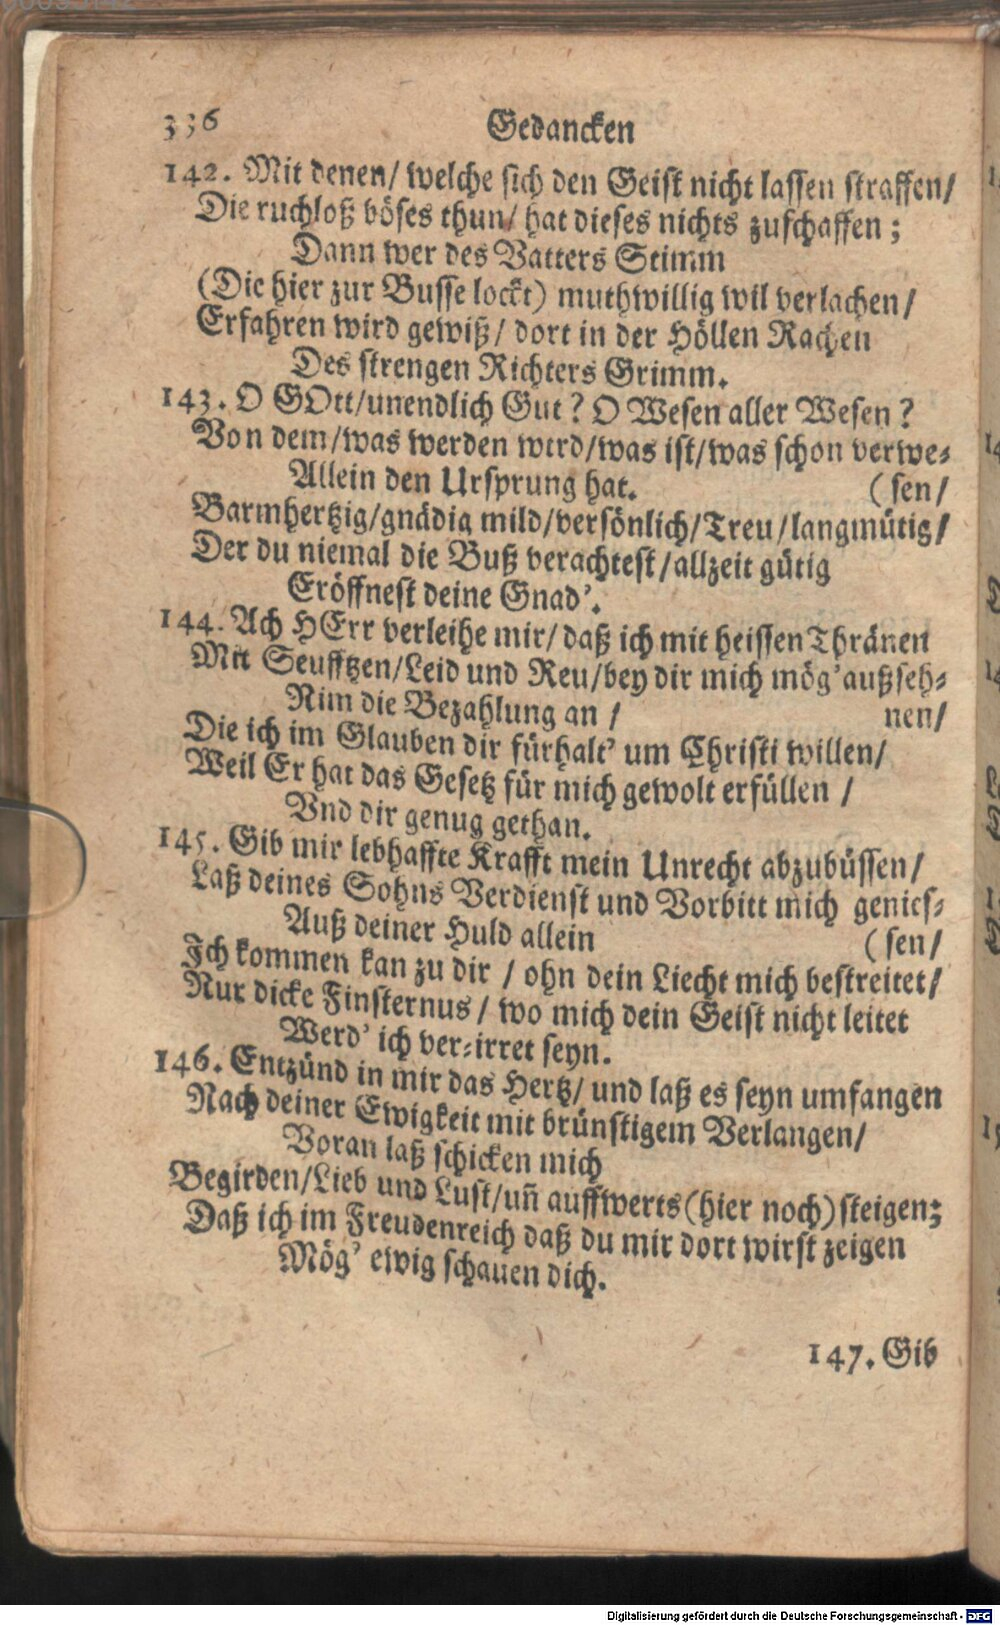 336 Gedancken
142. Mit denen/ welche sich den Geist nicht lassen straffen/
Die ruchloß böses thun/ hat dieses nichts zuschaffen;
Dann wer des Vatters Stimm
(Die hier zur Busse lockt) muthwillig wil verlachen/
Erfahren wird gewiß/ dort in der Höllen Rachen
Des strengen Richters Grimm.
143. O GOtt/unendlich Gut? O Wesen aller Wesen?
Von dem/was werden wird/was ist/was schon verwe-
Allein den Ursprung hat. (sen/
Barmhertzig/gnädig mild/versönlich/Treu/langmütig/
Der du niemal die Buß verachtest/allzeit gütig
Eröffnest deine Gnad'.
144. Ach HErr verleihe mir/ daß ich mit heissen Thränen
Mit Seufftzen/Leid und Reu/bey dir mich mög'außseh-
Nim die Bezahlung an / nen/
Die ich im Glauben dir fürhalt' um Christi willen/
Weil Er hat das Gesetz für mich gewolt erfüllen /
Vnd dir genug gethan.
145. Gib mir lebhaffte Krafft mein Unrecht abzubüssen/
Laß deines Sohns Verdienst und Vorbitt mich genies-
Auß deiner Huld allein (sen/
Ich kommen kan zu dir / ohn dein Liecht mich bestreitet/
Nur dicke Finsternus / wo mich dein Geist nicht leitet
Werd' ich ver-irret seyn.
146. Entzünd in mir das Hertz/ und laß es seyn umfangen
Nach deiner Ewigkeit mit brünstigem Verlangen/
Voran laß schicken mich
Begirden/Lieb und Lust/uñ auffwerts(hier noch)steigen;
Daß ich im Freudenreich daß du mir dort wirst zeigen
Mög' ewig schauen dich.
147. Gib
Digitalisierung gefördert durch die Deutsche Forschungsgemeinschaft - DFG